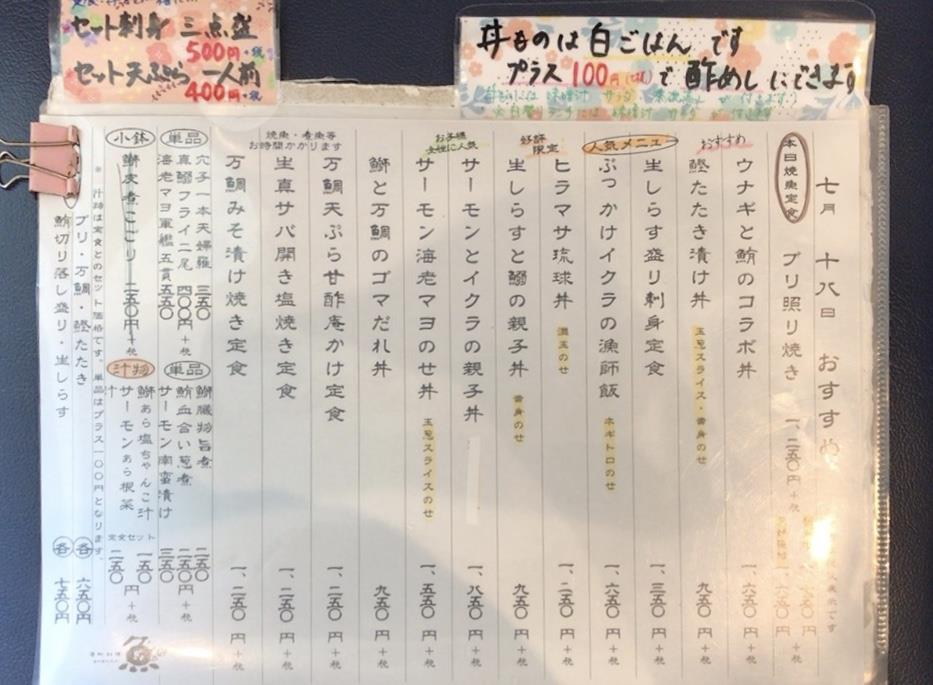 セット刺身 三点盛
500円+税
セット天ぷら 一人前
400円+税
丼ものは 白ごはん です
プラス 100円(税)で 酢めしにできます
七月 十八日 おすすめ
本日焼魚定食 ブリ照り焼き 一、二五〇円+税
ウナギと鮪のコラボ丼 一、六五〇円+税
おすすめ
鰹たたき漬け丼 玉葱スライス・黄身のせ 九五〇円+税
生しらす盛り刺身定食 一、三五〇円+税
人気メニュー
ぶっかけイクラの漁師飯 ネギトロのせ 一、六五〇円+税
ヒラマサ琉球丼 温玉のせ 一、二五〇円+税
好評
限定
生しらすと鰯の親子丼 黄身のせ 九五〇円+税
サーモンとイクラの親子丼 一、八五〇円+税
お子様
女性に人気
サーモン海老マヨのせ丼 玉葱スライスのせ 一、五五〇円+税
鰤と万鯛のゴマだれ丼 九五〇円+税
万鯛天ぷら甘酢庵かけ定食 一、二五〇円+税
焼魚・煮魚等
お時間かかります
生真サバ開き塩焼き定食 一、二五〇円+税
万鯛みそ漬け焼き定食 一、二五〇円+税
単品
穴子一本天婦羅 三五〇
真鰯フライ二尾 四〇〇円+税
海老マヨ軍艦五貫 五五〇
単品
鰤臓物旨煮 二五〇
鮪血合い葱煮 二五〇円+税
サーモン南蛮漬け 三五〇
小鉢
鰤皮煮こごり 二五〇円+税
汁物
定食セット
鰤あら塩ちゃんこ汁 一五〇
サーモンあら根菜汁 二五〇
円+税
※ 汁物は定食とのセット価格です。単品はプラス一〇〇円となります。
ブリ・万鯛・鰹たたき 各 六五〇円
鮪切り落し盛り・生しらす 各 七五〇円